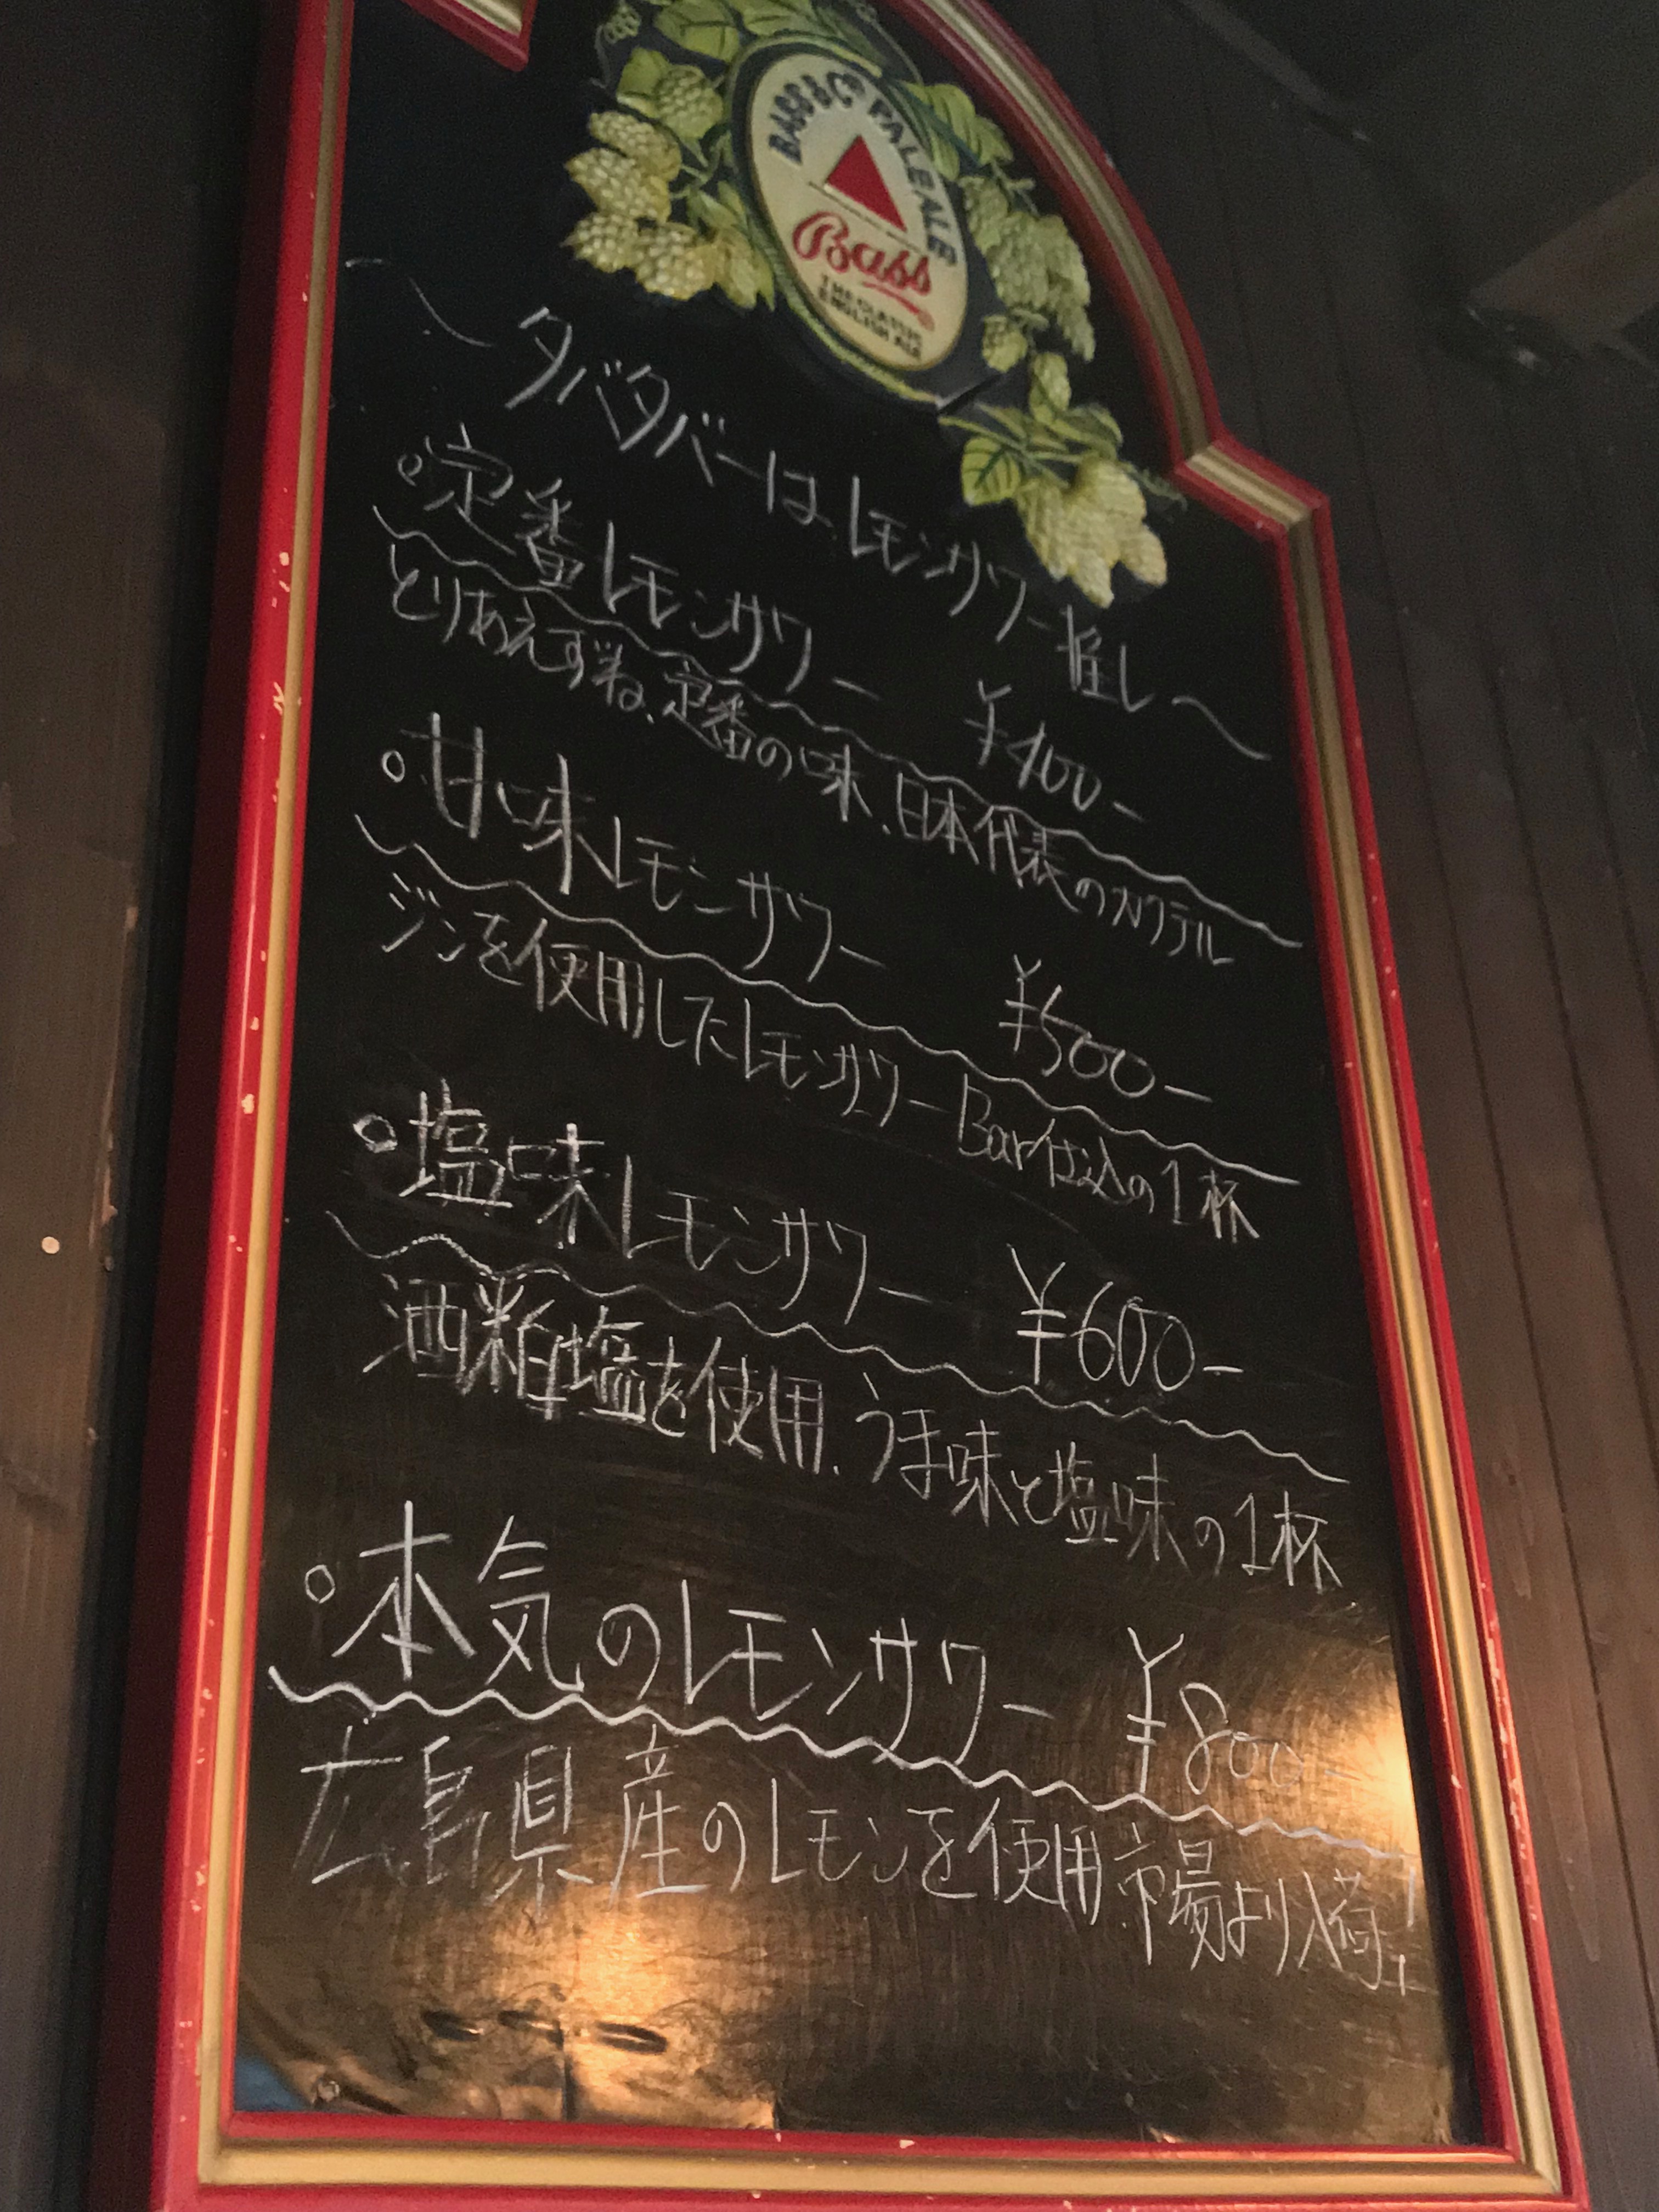 BASS & Co PALE ALE
Bass
THE CLASSIC
ENGLISH ALE
〜タバタバーはレモンサワー推し〜
○定番レモンサワー ¥400-
とりあえずね、定番の味、日本代表のカクテル
○甘味レモンサワー ¥500-
ジンを使用したレモンサワーBar仕込の1杯
○塩味レモンサワー ¥600-
酒粕塩を使用、うま味と塩味の1杯
○本気のレモンサワー ¥800-
広島県産のレモンを使用 市場より入荷!